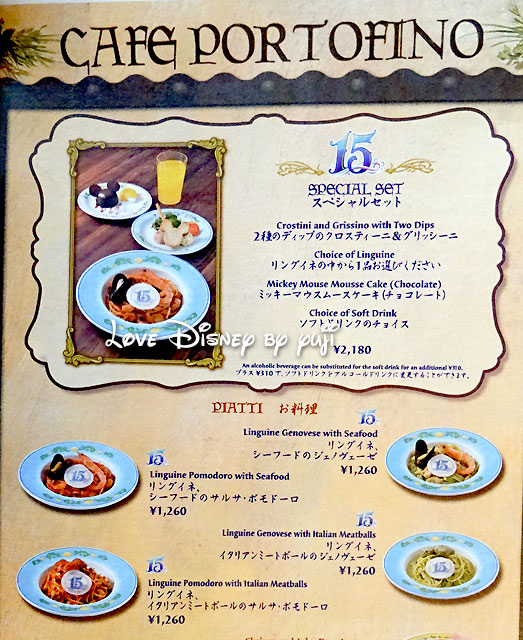 CAFE PORTOFINO
15th
SPECIAL SET
スペシャルセット
Crostini and Grissino with Two Dips
2種のディップのクロスティーニ&グリッシーニ
Choice of Linguine
リングイネの中から1品お選びください
Mickey Mouse Mousse Cake (Chocolate)
ミッキーマウスムースケーキ(チョコレート)
Choice of Soft Drink
ソフトドリンクのチョイス
¥2,180
An alcoholic beverage can be substituted for the soft drink for an additional ¥310.
プラス¥310で、ソフトドリンクをアルコールドリンクに変更することができます。
15
Love Disney by yuji
PIATTI お料理
15
Linguine Genovese with Seafood
リングイネ、
シーフードのジェノヴェーゼ
¥1,260
15
15
Linguine Pomodoro with Seafood
リングイネ、
シーフードのサルサ・ポモドーロ
¥1,260
15
15
Linguine Genovese with Italian Meatballs
リングイネ、
イタリアンミートボールのジェノヴェーゼ
¥1,260
15
15
Linguine Pomodoro with Italian Meatballs
リングイネ、
イタリアンミートボールのサルサ・ポモドーロ
¥1,260
15